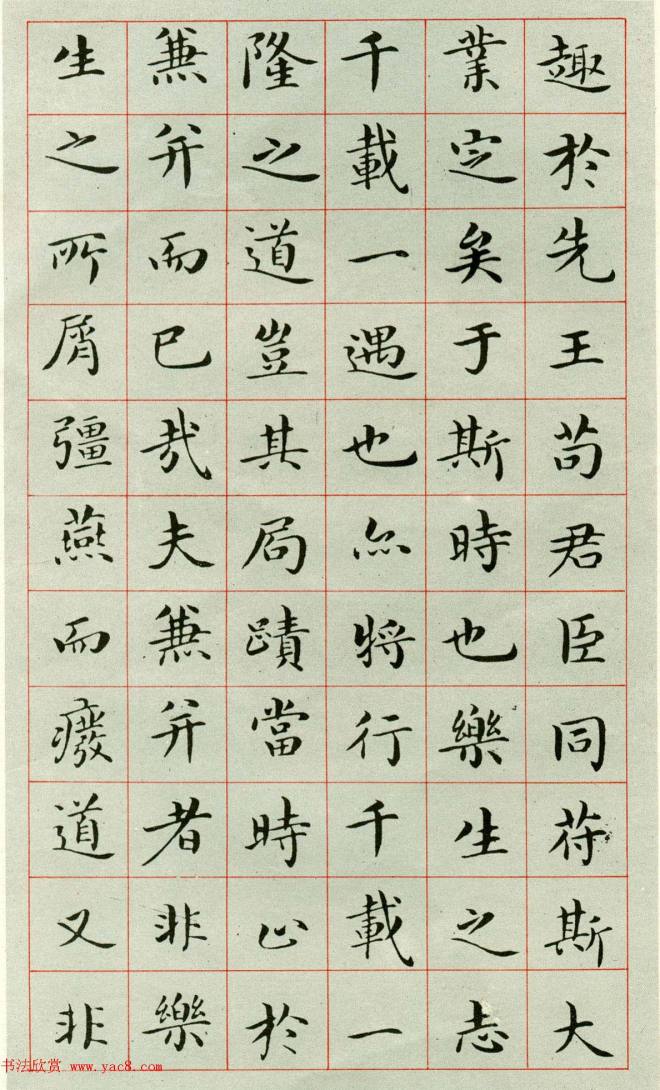 趣於先王苟君臣同苻斯大
業定矣于斯時也樂生之志
千載一遇也亦將行千載一
隆之道豈其局蹟當時止於
兼并而已哉夫兼并者非樂
生之所屑彊燕而癈道又非
书法欣赏 www.yac8.com